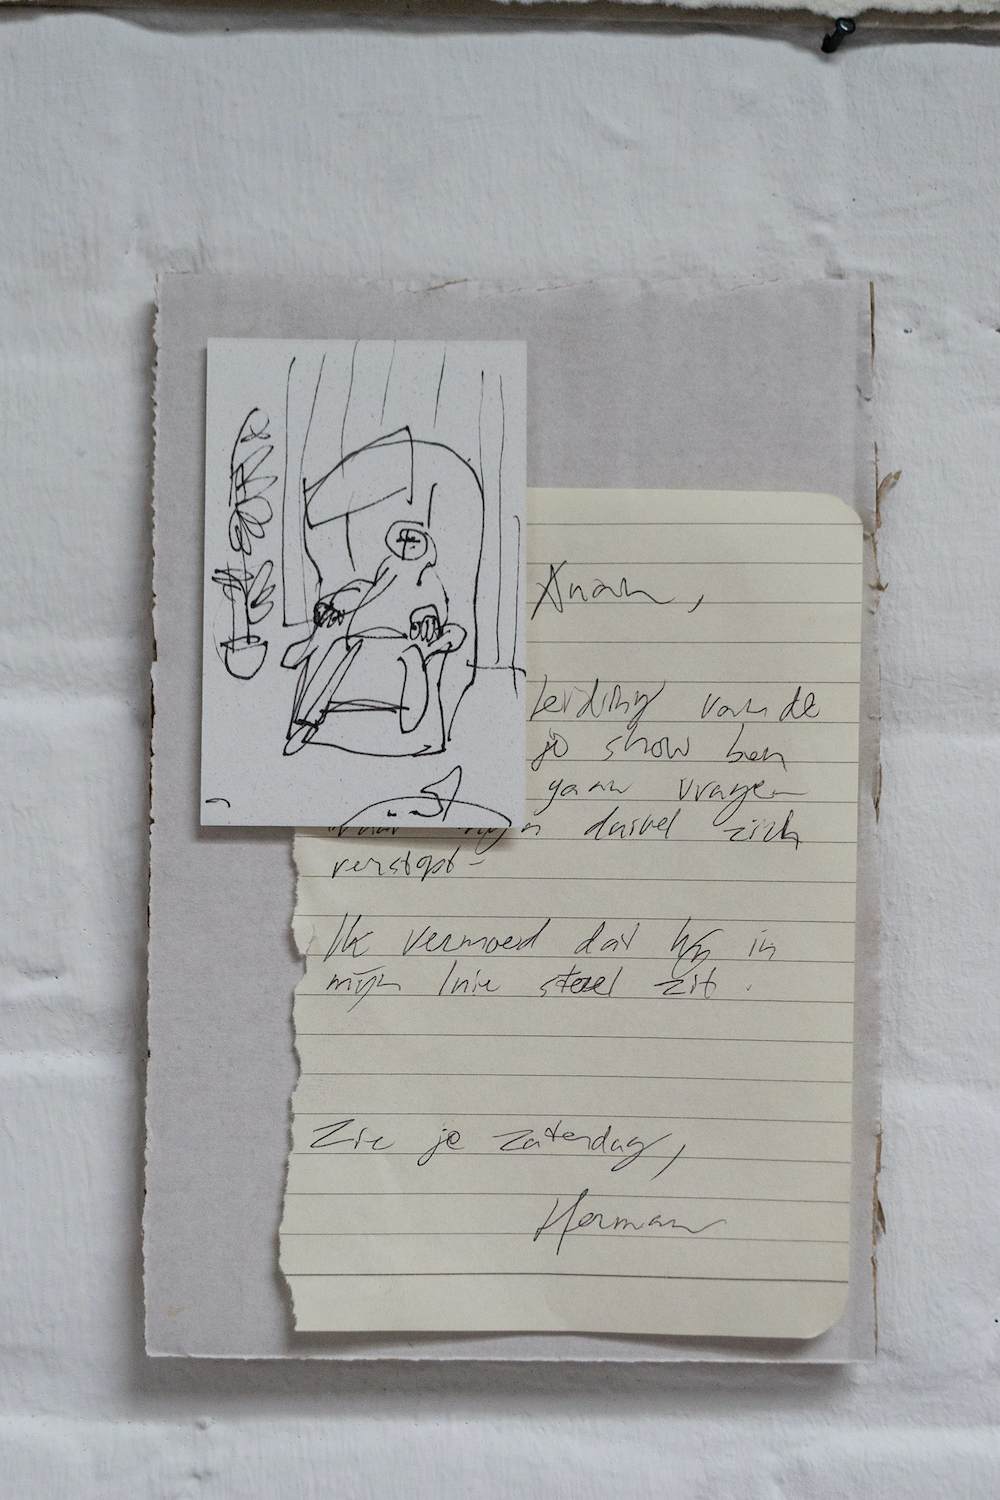 leiding van de
jo show ben
gaan vragen
duivel zich
verstopt
Ik vermoed dat hij in
mijn luie stoel zit.
Zie je zaterdag,
Herman